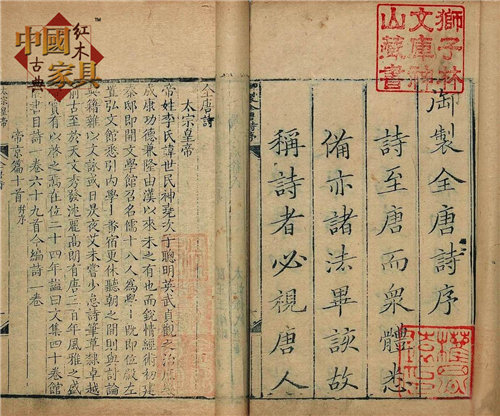 獅子林
文庫
山藏書
御製全唐詩序
詩至唐而衆體悉
備亦諸法畢該故
稱詩者必視唐人
全唐詩
太宗皇帝
帝姓李氏諱世民神堯次子聰明英武貞觀之治庶幾
成康功德兼隆由漢以來未之有也而銳情經術初建
秦邸即開文學館召名儒十八人為學士既即位殿左
置弘文館悉引內學士番宿更休聽朝之間則與討論
典籍雜以文詠或日昃夜艾未嘗少怠詩筆草隸卓越
前古至於天文秀發沈麗高朗有唐三百年風雅之盛
帝實有以啓之焉在位二十四年諡曰文集四十卷館
書目詩一卷六十九首今編詩一卷
帝京篇十首并序
太宗皇帝
中國
古典
紅木
家具